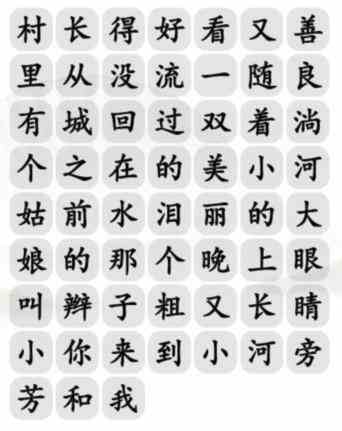 村长得好看又善
里从没流一随良
有城回过双着淌
个之在的美小河
姑前水泪丽的大
娘的那个晚上眼
叫辫子粗又长睛
小你来到小河旁
芳和我